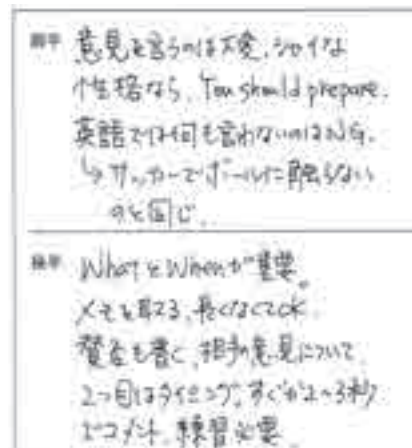 前半 意見を言うのは大変、シャイな
性格なら、You should prepare.
英語では何も言わないのはNG.
↳ サッカーでボールに触らない
のと同じ.
後半 What と When が重要。
メモを取る、長くなくてOK
賛否も書く、相手の意見について
2つ目はタイミング、すぐか2〜3秒
でコメント、練習必要